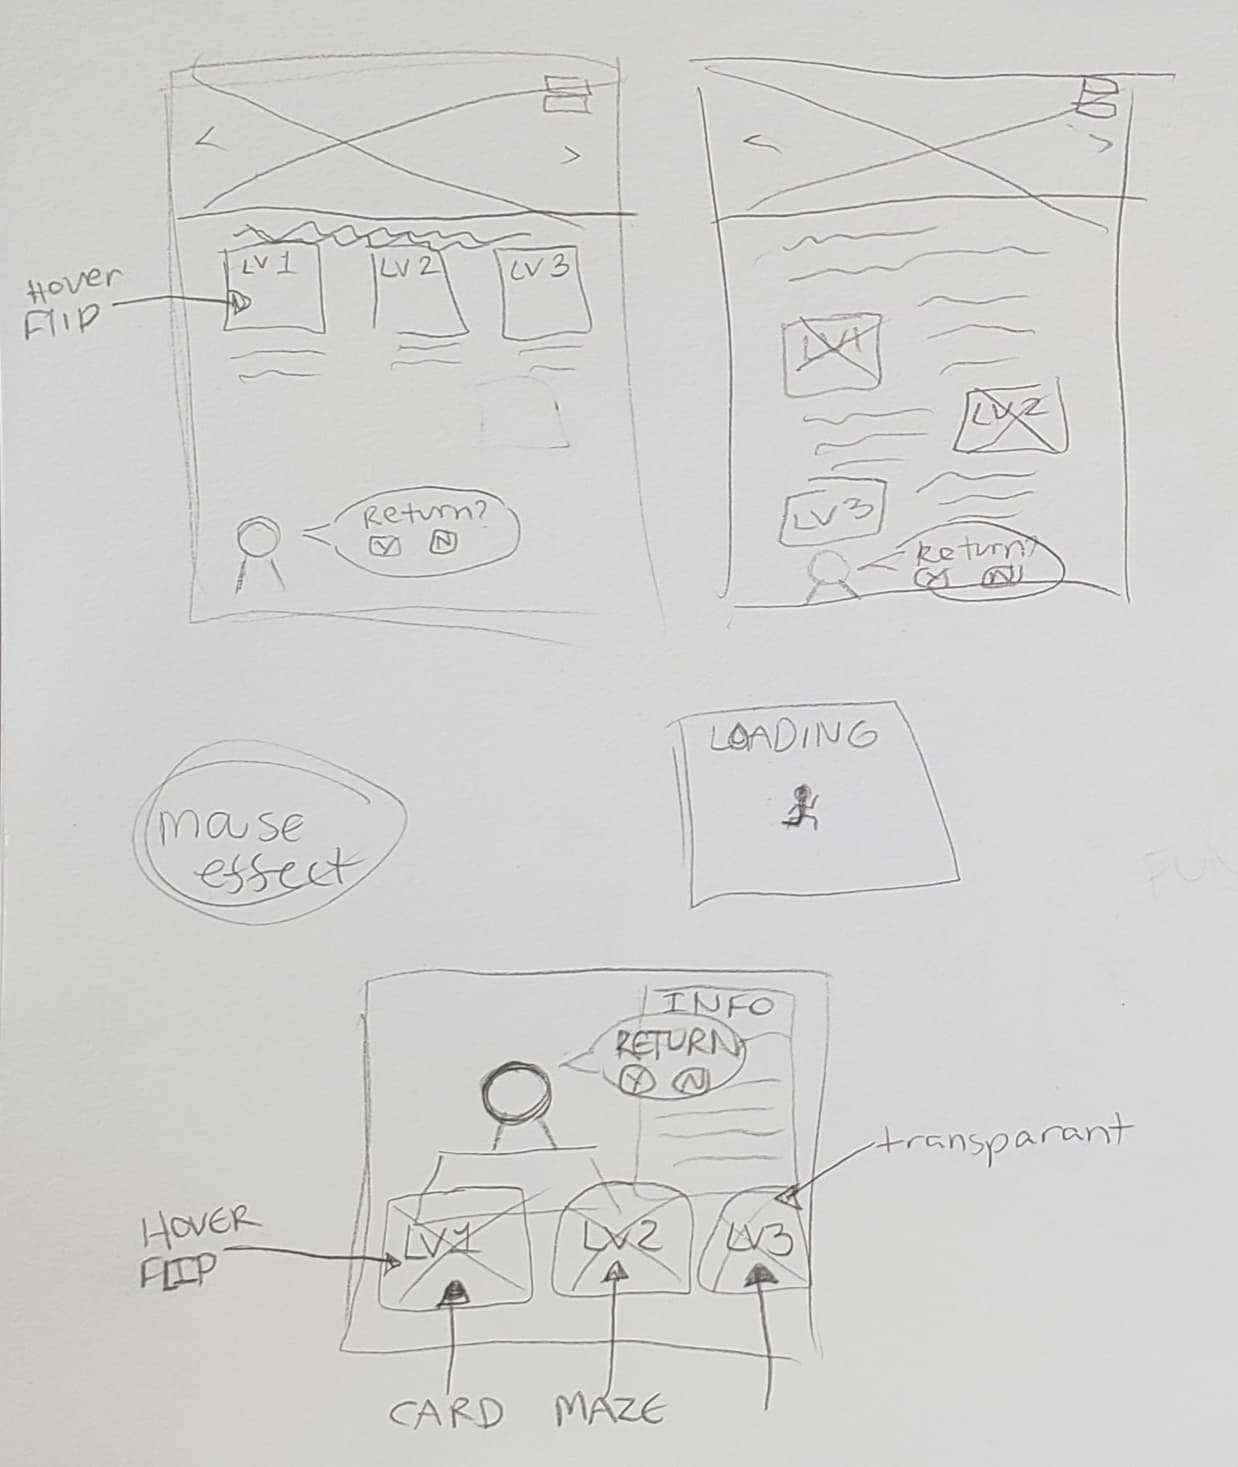 <
>
LV1
LV2
LV3
Hover
FlIP
Return?
Y
N
<
>
LV1
LV2
LV3
Return?
Y
N
mouse
effect
LOADING
FUN
INFO
RETURN
Y
N
transparant
HOVER
FLIP
LV1
LV2
LV3
CARD
MAZE